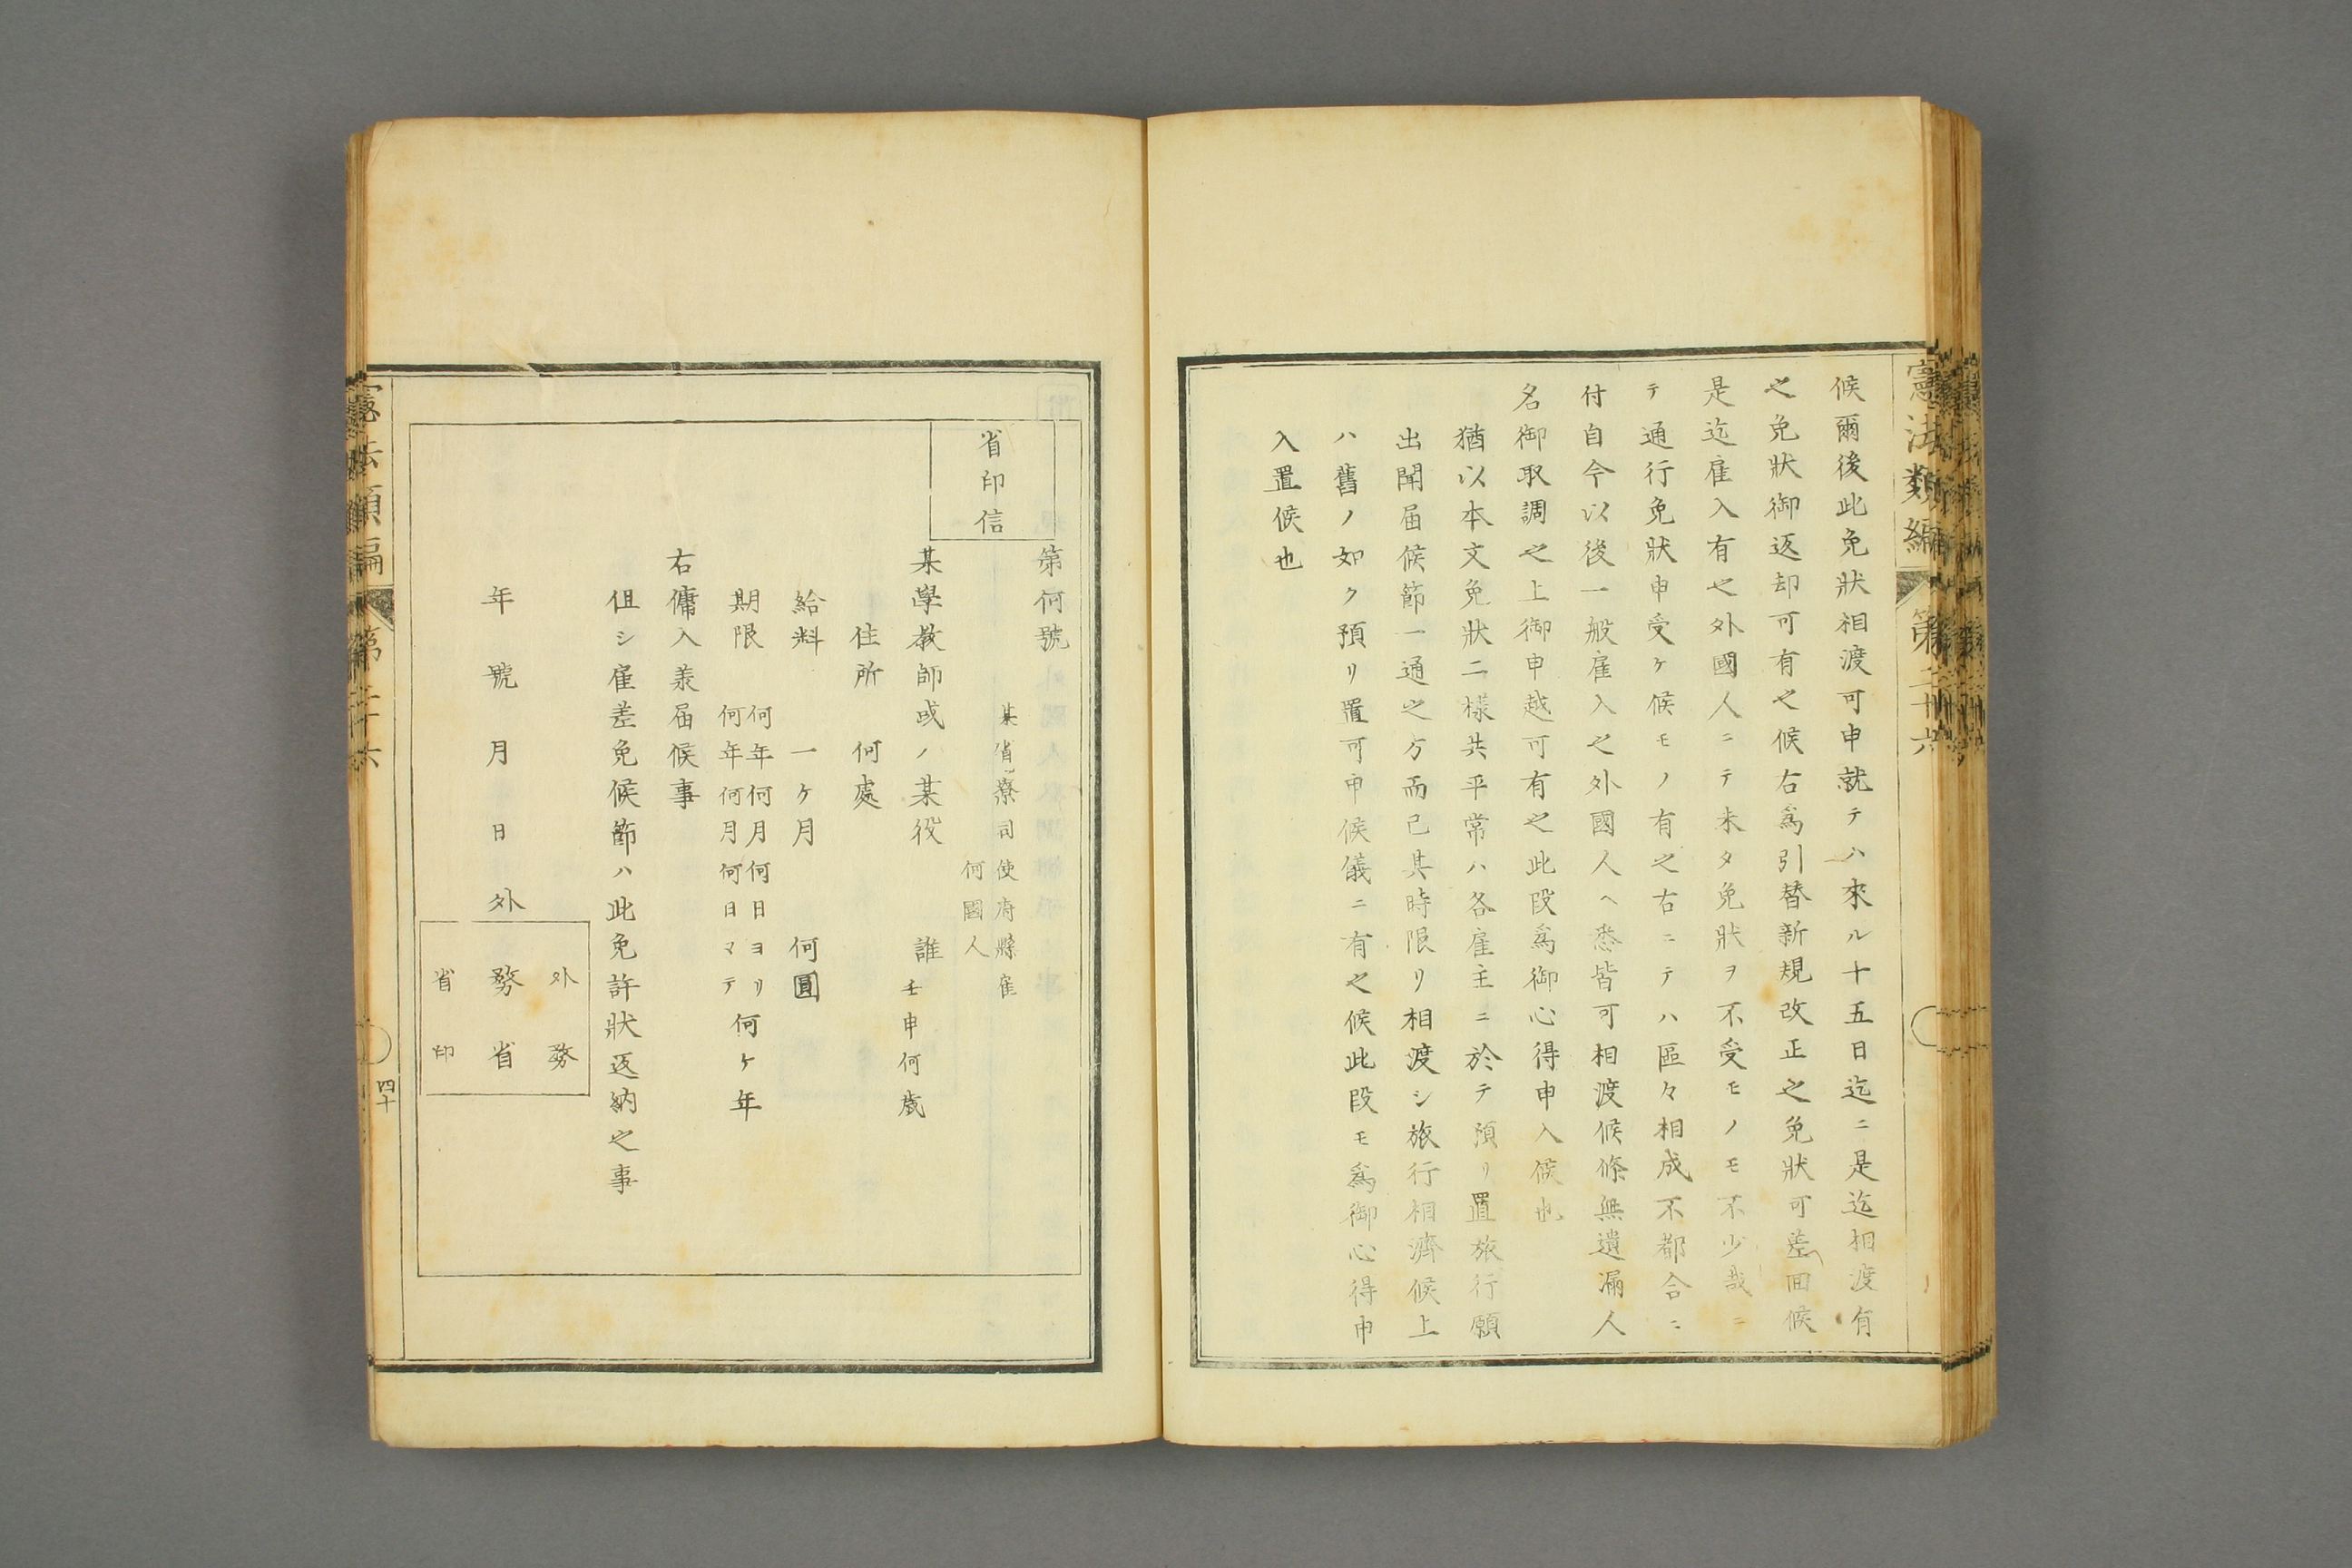 憲法類編 第二十六
候爾後此免狀相渡可申就テハ來ル十五日迄ニ是迄相渡有
之免狀御返却可有之候右爲引替新規改正之免狀可差回候
是迄雇入有之外國人ニテ未タ免狀ヲ不受モノモ不少哉ニ
テ通行免狀申受ケ候モノ有之右ニテハ區々相成不都合ニ
付自今以後一般雇入之外國人ヘ悉皆可相渡候條無遺漏人
名御取調之上御申越可有之此段爲御心得申入候也
猶以本文免狀二樣共平常ハ各雇主ニ於テ預リ置旅行願
出聞届候節一通之方而已其時限リ相渡シ旅行相濟候上
ハ舊ノ如ク預リ置可申候儀ニ有之候此段モ爲御心得申
入置候也
省印信
第何號
某省寮司使府縣雇
何國人
某學教師或ノ某役 誰 壬申何歳
住所 何處
給料 一ケ月 何圓
期限 何年何月何日ヨリ何年何月何日マテ何ケ年
右傭入羕届候事
但シ雇差免候節ハ此免許狀返納之事
年號月日 外務省
外務省印
憲法類編 第二十六
四十